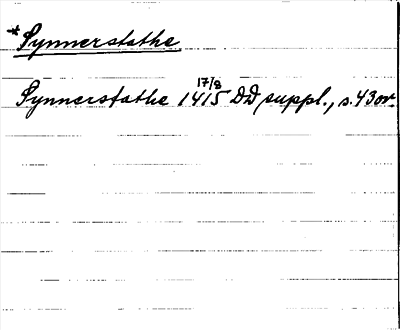 *Synnerstathe
Synnerstathe 17/8 1415 DD suppl., s. 430r.